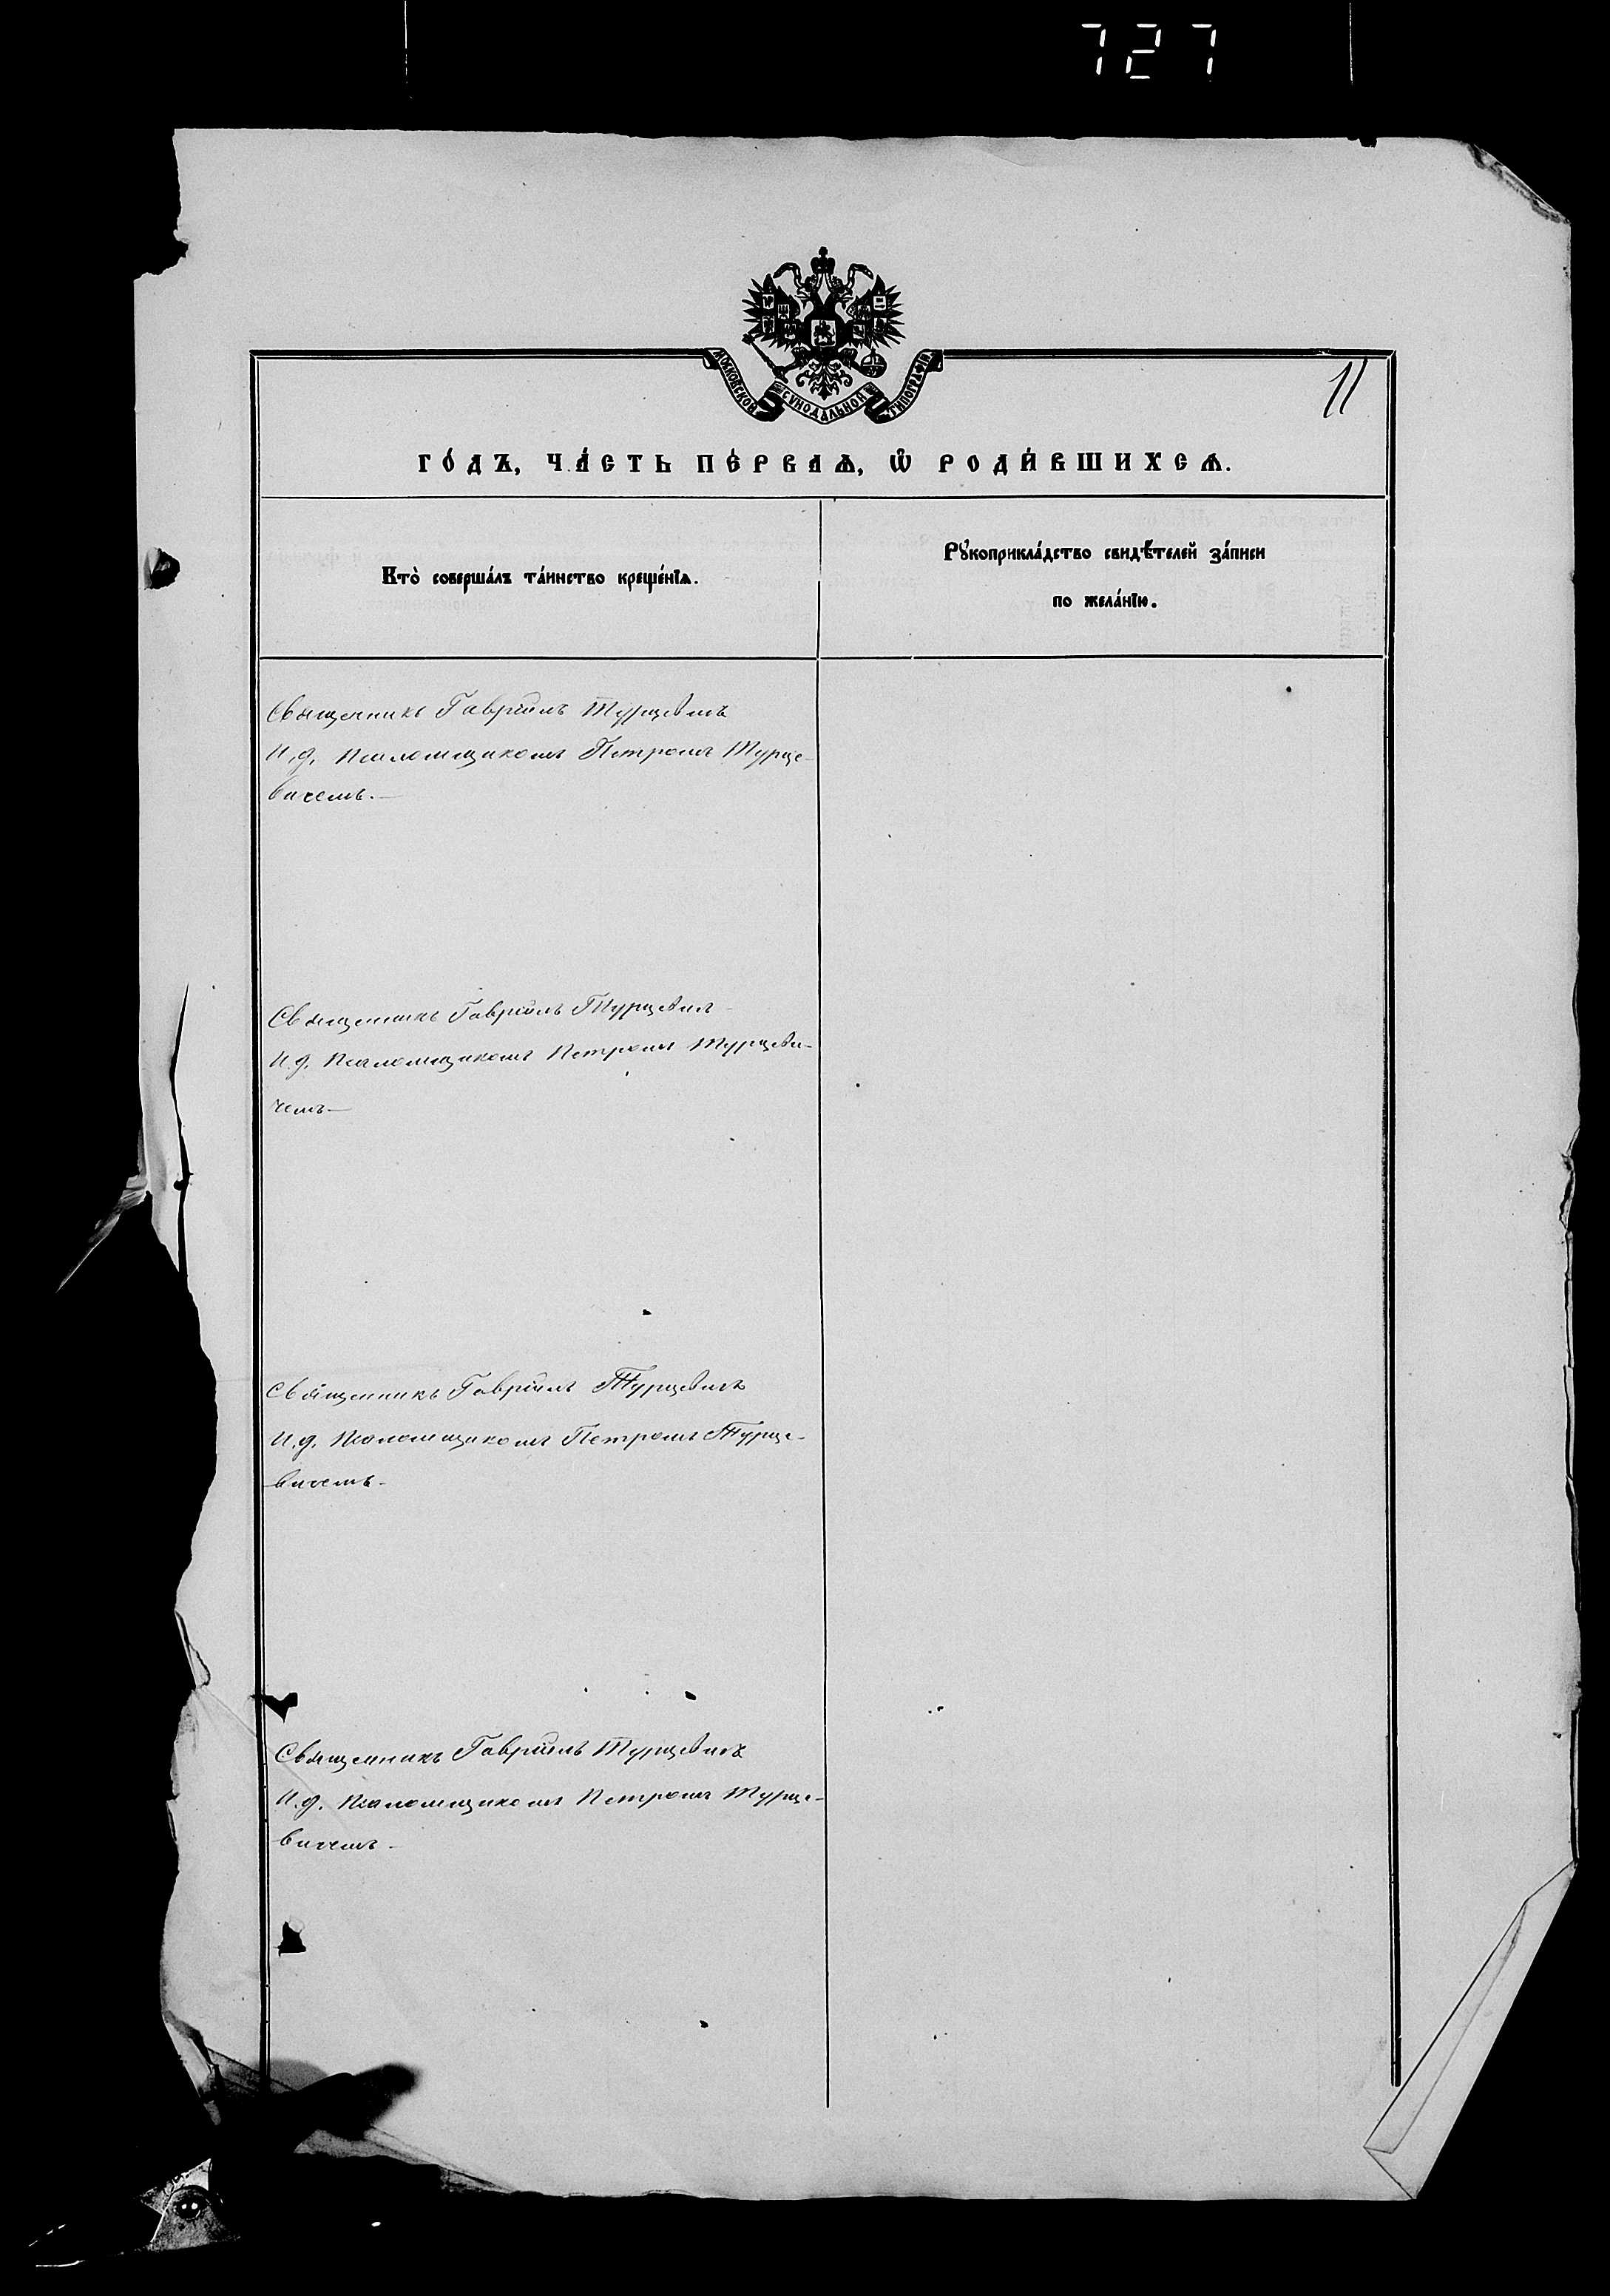 727
МОСКОВСКОЙ СУНОДАЛЬНОЙ ТИПОГРАФІИ
11
ГО́ДЪ, ЧА́СТЬ ПЕ́РВАѦ, Ѡ҆ РОДИ́ВШИХСѦ.
Кто̀ соверша́лъ та́инство креще́нїѧ.
Рꙋкоприкла́дство свидѣ́телей за́писи
по жела́нїю.
Священникъ Гавріилъ Турцевичъ
И. д. Псаломщикомъ Петромъ Турце-
вичемъ.—
Священникъ Гавріилъ Турцевич
И. д. Псаломщикомъ Петромъ Турцеви-
чемъ—
Священникъ Гавріилъ Турцевичъ
И. д. Псаломщикомъ Петромъ Турце-
вичемъ-
Священникъ Гавріилъ Турцевичъ
И. д. Псаломщикомъ Петромъ Турце-
вичемъ-